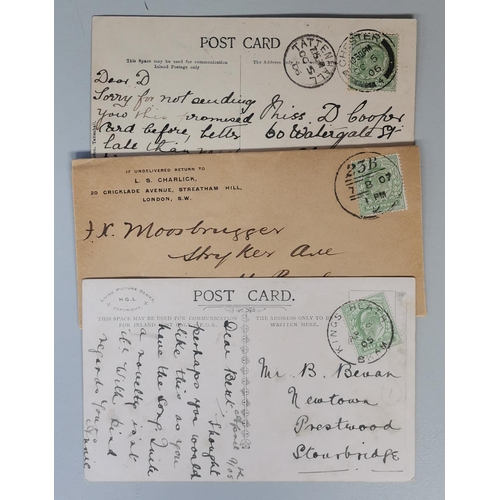 POST CARD
This Space may be used for communication
Inland Postage only
TATTENHALL
CHESTER
Dear D
Sorry for not sending
you this promised
card before, better
late than
Miss. D Cooper
60 Watergate St
IF UNDELIVERED RETURN TO
L. S. CHARLICK,
20 CRICKLADE AVENUE, STREATHAM HILL,
LONDON, S.W.
23B
07
1 PM
J.X. Moosbrugger
Stryker Ave
H.G.L.
POST CARD.
THIS SPACE MAY BE USED FOR COMMUNICATION
THE ADDRESS ONLY TO BE
WRITTEN HERE.
KINGS HEATH
05
Dear Bent
I thought
perhaps you would
like this as you
have the song Quite
a novelty isn't
it. With kind
regards Yours
Annie
Mr. B. Bevan
Newtown
Prestwood
Stourbridge